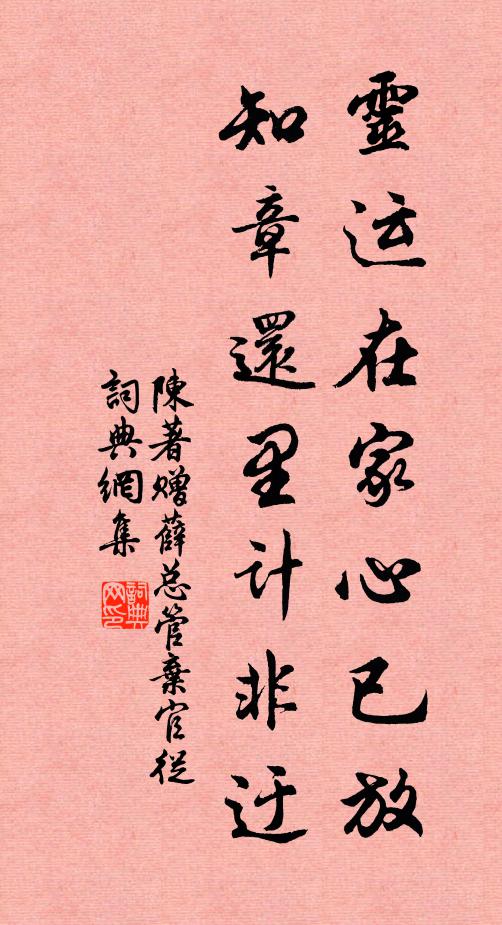 靈运在家心已放
知章還里計非迂
陳著赠薛总管棄官從
詞典網集
詞典网印